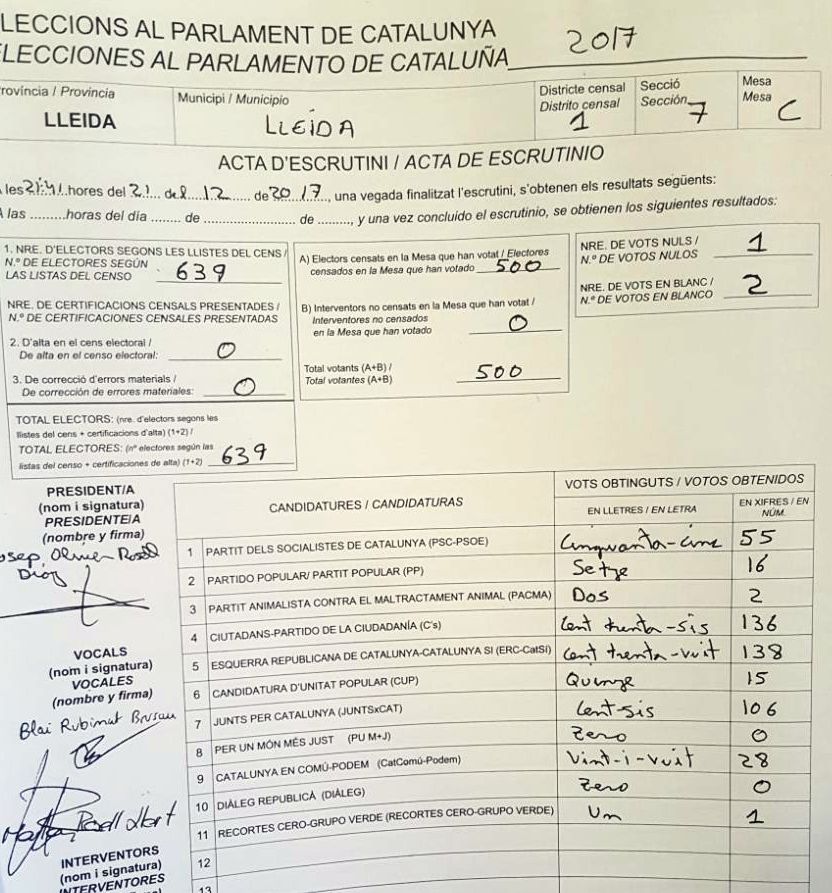 LECCIONS AL PARLAMENT DE CATALUNYA
ELECCIONES AL PARLAMENTO DE CATALUÑA 2017
rovíncia / Provincia
LLEIDA
Municipi / Municipio
LLEIDA
Districte censal
Distrito censal
1
Secció
Sección
7
Mesa
Mesa
C
ACTA D'ESCRUTINI / ACTA DE ESCRUTINIO
les 21:41 hores del 21 del 12 de 2017, una vegada finalitzat l'escrutini, s'obtenen els resultats següents:
A las .........horas del día ........ de ........................ de ........, y una vez concluido el escrutinio, se obtienen los siguientes resultados:
1. NRE. D'ELECTORS SEGONS LES LLISTES DEL CENS /
N.º DE ELECTORES SEGÚN
LAS LISTAS DEL CENSO 639
NRE. DE CERTIFICACIONS CENSALS PRESENTADES /
N.º DE CERTIFICACIONES CENSALES PRESENTADAS
2. D'alta en el cens electoral /
De alta en el censo electoral: 0
3. De correcció d'errors materials /
De corrección de errores materiales: 0
TOTAL ELECTORS: (nre. d'electors segons les
llistes del cens + certificacions d'alta) (1+2) /
TOTAL ELECTORES: (nº electores según las
listas del censo + certificaciones de alta) (1+2) 639
A) Electors censats en la Mesa que han votat / Electores
censados en la Mesa que han votado 500
B) Interventors no censats en la Mesa que han votat /
Interventores no censados
en la Mesa que han votado 0
Total votants (A+B) /
Total votantes (A+B) 500
NRE. DE VOTS NULS /
N.º DE VOTOS NULOS 1
NRE. DE VOTS EN BLANC /
N.º DE VOTOS EN BLANCO 2
PRESIDENT/A
(nom i signatura)
PRESIDENTE/A
(nombre y firma)
VOCALS
(nom i signatura)
VOCALES
(nombre y firma)
Blai Rubinat
INTERVENTORS
(nom i signatura)
INTERVENTORES
CANDIDATURES / CANDIDATURAS
VOTS OBTINGUTS / VOTOS OBTENIDOS
EN LLETRES / EN LETRA
EN XIFRES / EN NÚM.
1 PARTIT DELS SOCIALISTES DE CATALUNYA (PSC-PSOE) Cinquanta-cinc 55
2 PARTIDO POPULAR/ PARTIT POPULAR (PP) Setze 16
3 PARTIT ANIMALISTA CONTRA EL MALTRACTAMENT ANIMAL (PACMA) Dos 2
4 CIUTADANS-PARTIDO DE LA CIUDADANÍA (C's) Cent trenta-sis 136
5 ESQUERRA REPUBLICANA DE CATALUNYA-CATALUNYA SI (ERC-CatSí) Cent trenta-vuit 138
6 CANDIDATURA D'UNITAT POPULAR (CUP) Quinze 15
7 JUNTS PER CATALUNYA (JUNTSxCAT) Cent-sis 106
8 PER UN MÓN MÉS JUST (PU M+J) Zero 0
9 CATALUNYA EN COMÚ-PODEM (CatComú-Podem) Vint-i-vuit 28
10 DIÀLEG REPUBLICÀ (DIÀLEG) Zero 0
11 RECORTES CERO-GRUPO VERDE (RECORTES CERO-GRUPO VERDE) Un 1
12
13